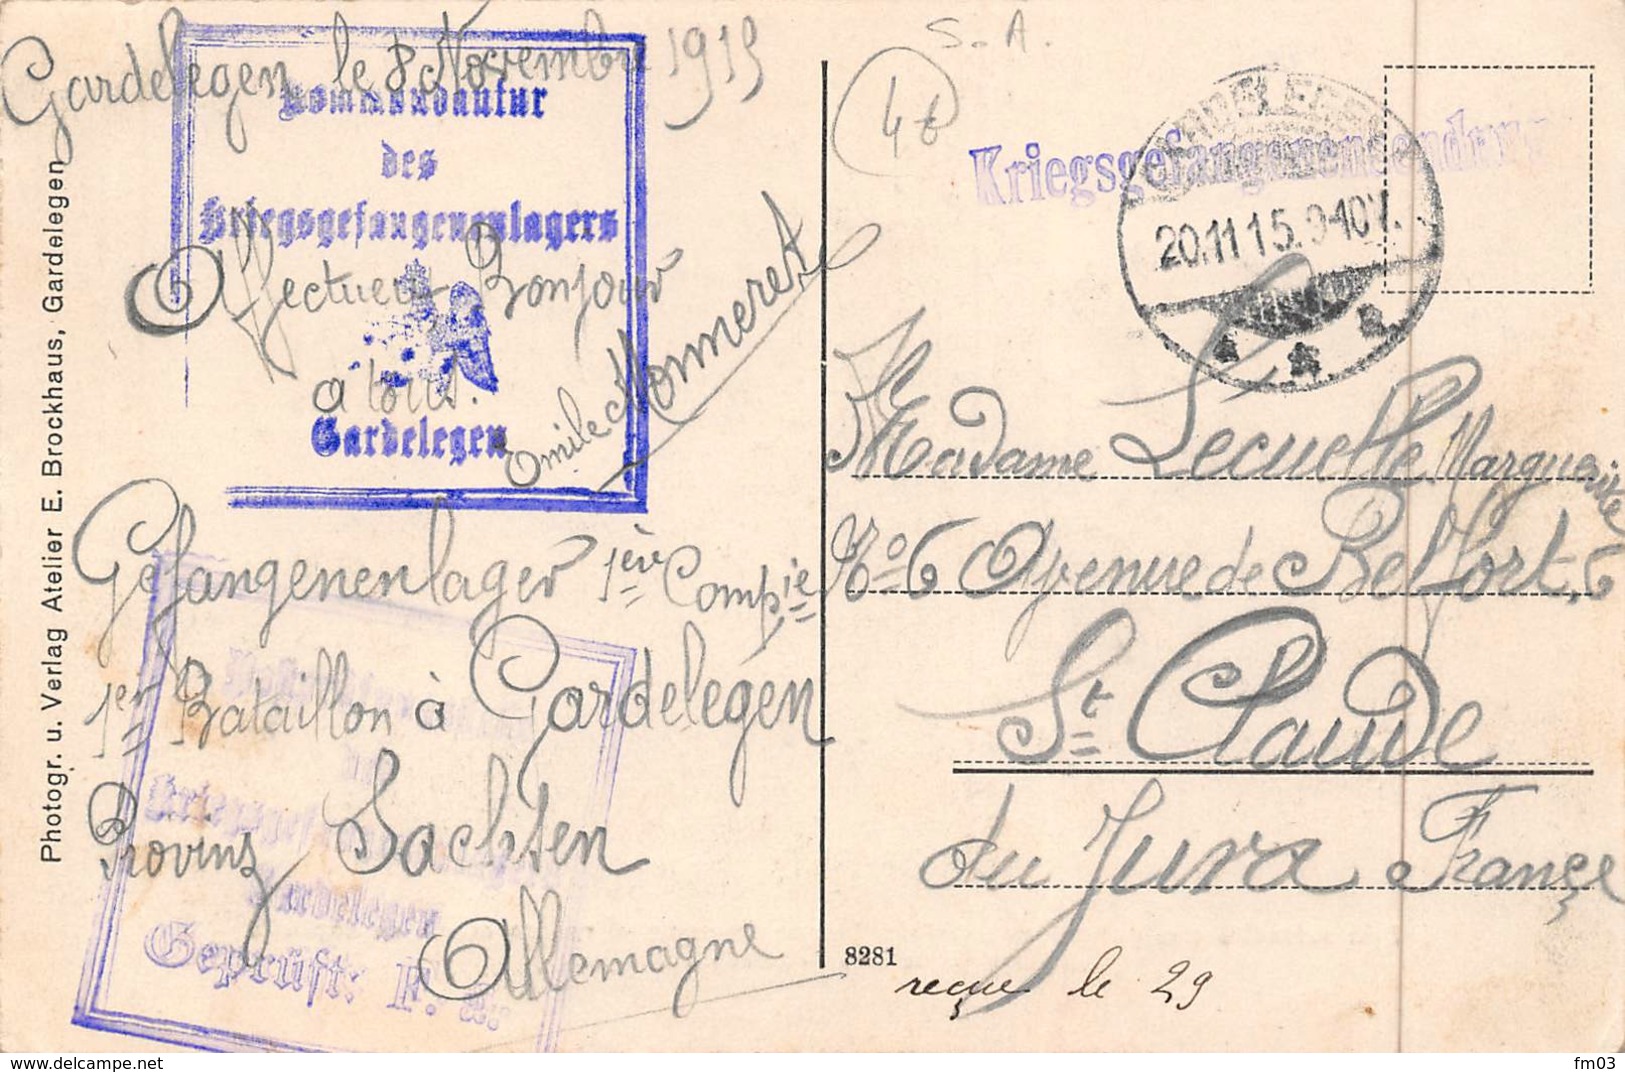 Gardelegen le 8 Novembre 1915
Kommandantur
des
Kriegsgefangenenlagers
Gardelegen
Affectueux Bonjour
a tous.
Emile Monneret
Gefangenenlager 1ère Compie
1er Bataillon à Gardelegen
Provinz Sachsen
Allemagne
Kriegsgefangenen
Gardelegen
Geprüft: F. a.
Photogr. u. Verlag Atelier E. Brockhaus, Gardelegen
8281
S. A.
4€
Kriegsgefangenensendung
GARDELEGEN
20.11.15.9-10V.
Madame Lecuelle Marguerite
No 6 Avenue de Belfort, 6
St Claude
du Jura France
reçue le 29
delcampe.net
fm03